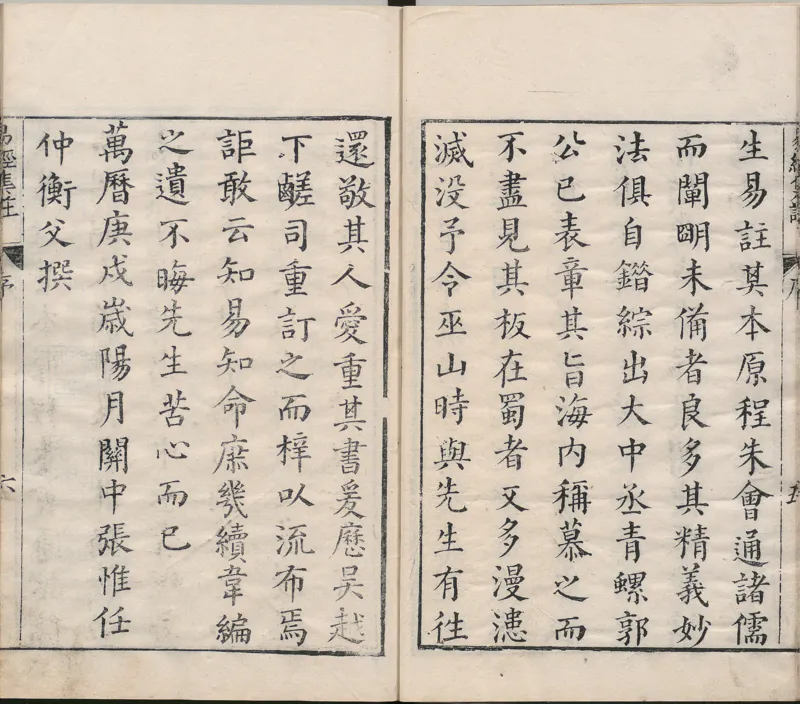 生易註其本原程朱會通諸儒
而闡明未備者良多其精義妙
法俱自錯綜出大中丞青螺郭
公已表章其旨海内稱慕之而
不盡見其板在蜀者又多漫漶
滅没予令巫山時與先生有徃
五
還敬其人愛重其書爰應吳越
下鹺司重訂之而梓以流布焉
詎敢云知易知命庶幾續韋編
之遺不晦先生苦心而已
萬曆庚戌歲陽月關中張惟任
仲衡父撰
易經集註
序
六